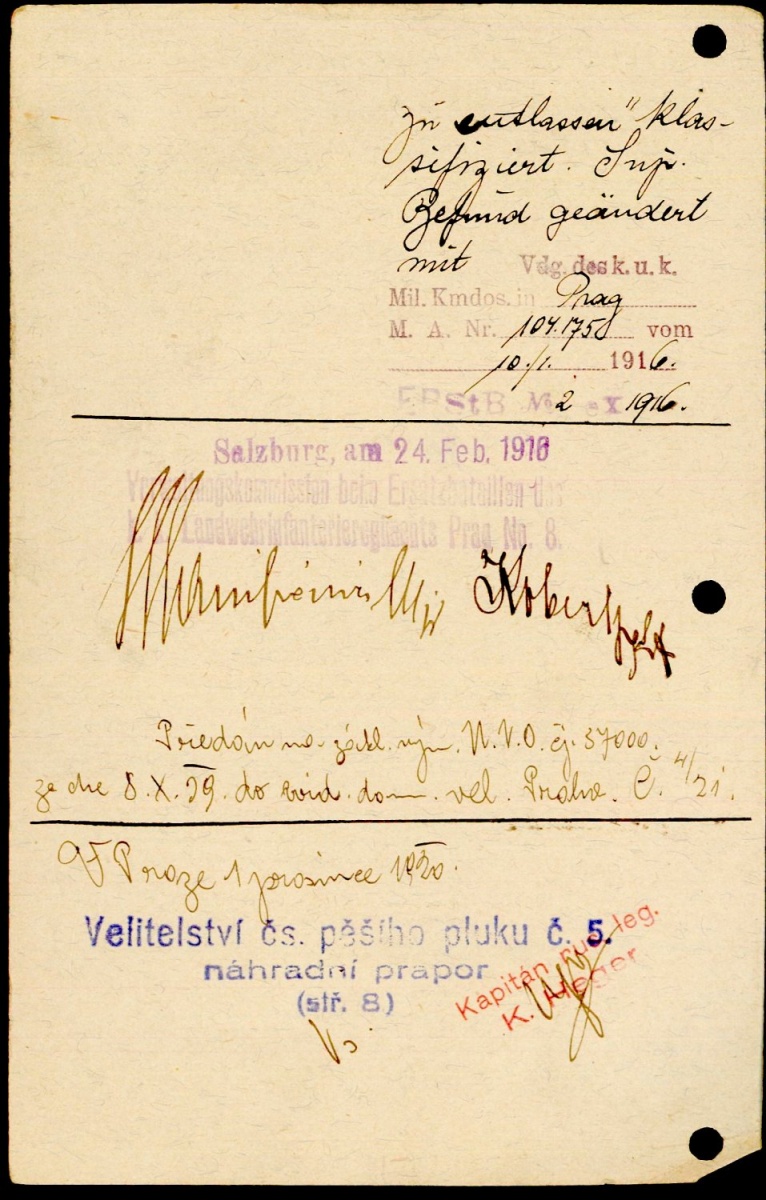 zu entlassen" klas-
sifiziert. Sup.
Befund geändert
mit Vdg. des k. u. k.
Mil. Kmdos. in Prag
M. A. Nr. 104.175 vom
10./1. 1916.
EBStB No 2 1916.
Salzburg, am 24. Feb. 1916
beim Ersatzbataillon des
k. k. Landwehrinfanterieregiments Prag No. 8.
Předán na zákl. výn. N.V.O. čj. 57000.
ze dne 8.X.19. do evid. dom. vel. Praha. Č. 4/21.
V Praze 1 prosince 1920.
Velitelství čs. pěšího pluku č. 5.
náhradní prapor
(stř. 8)
Kapitán rus. leg.
K. Heger